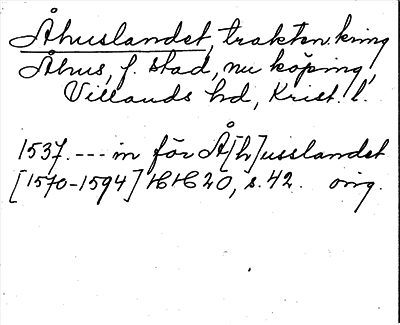 Åhuslandet, trakten kring
Åhus, f. stad, nu köping,
Villands hd, Krist. l.
1537. --- in för Å[h]usslandet
[1570-1594] HH 20, s. 42. orig.